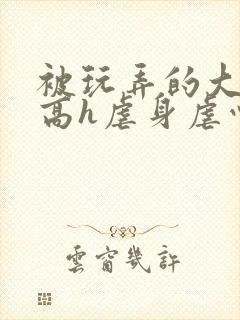 被玩弄的大
高h虐身虐
雲窗幾許